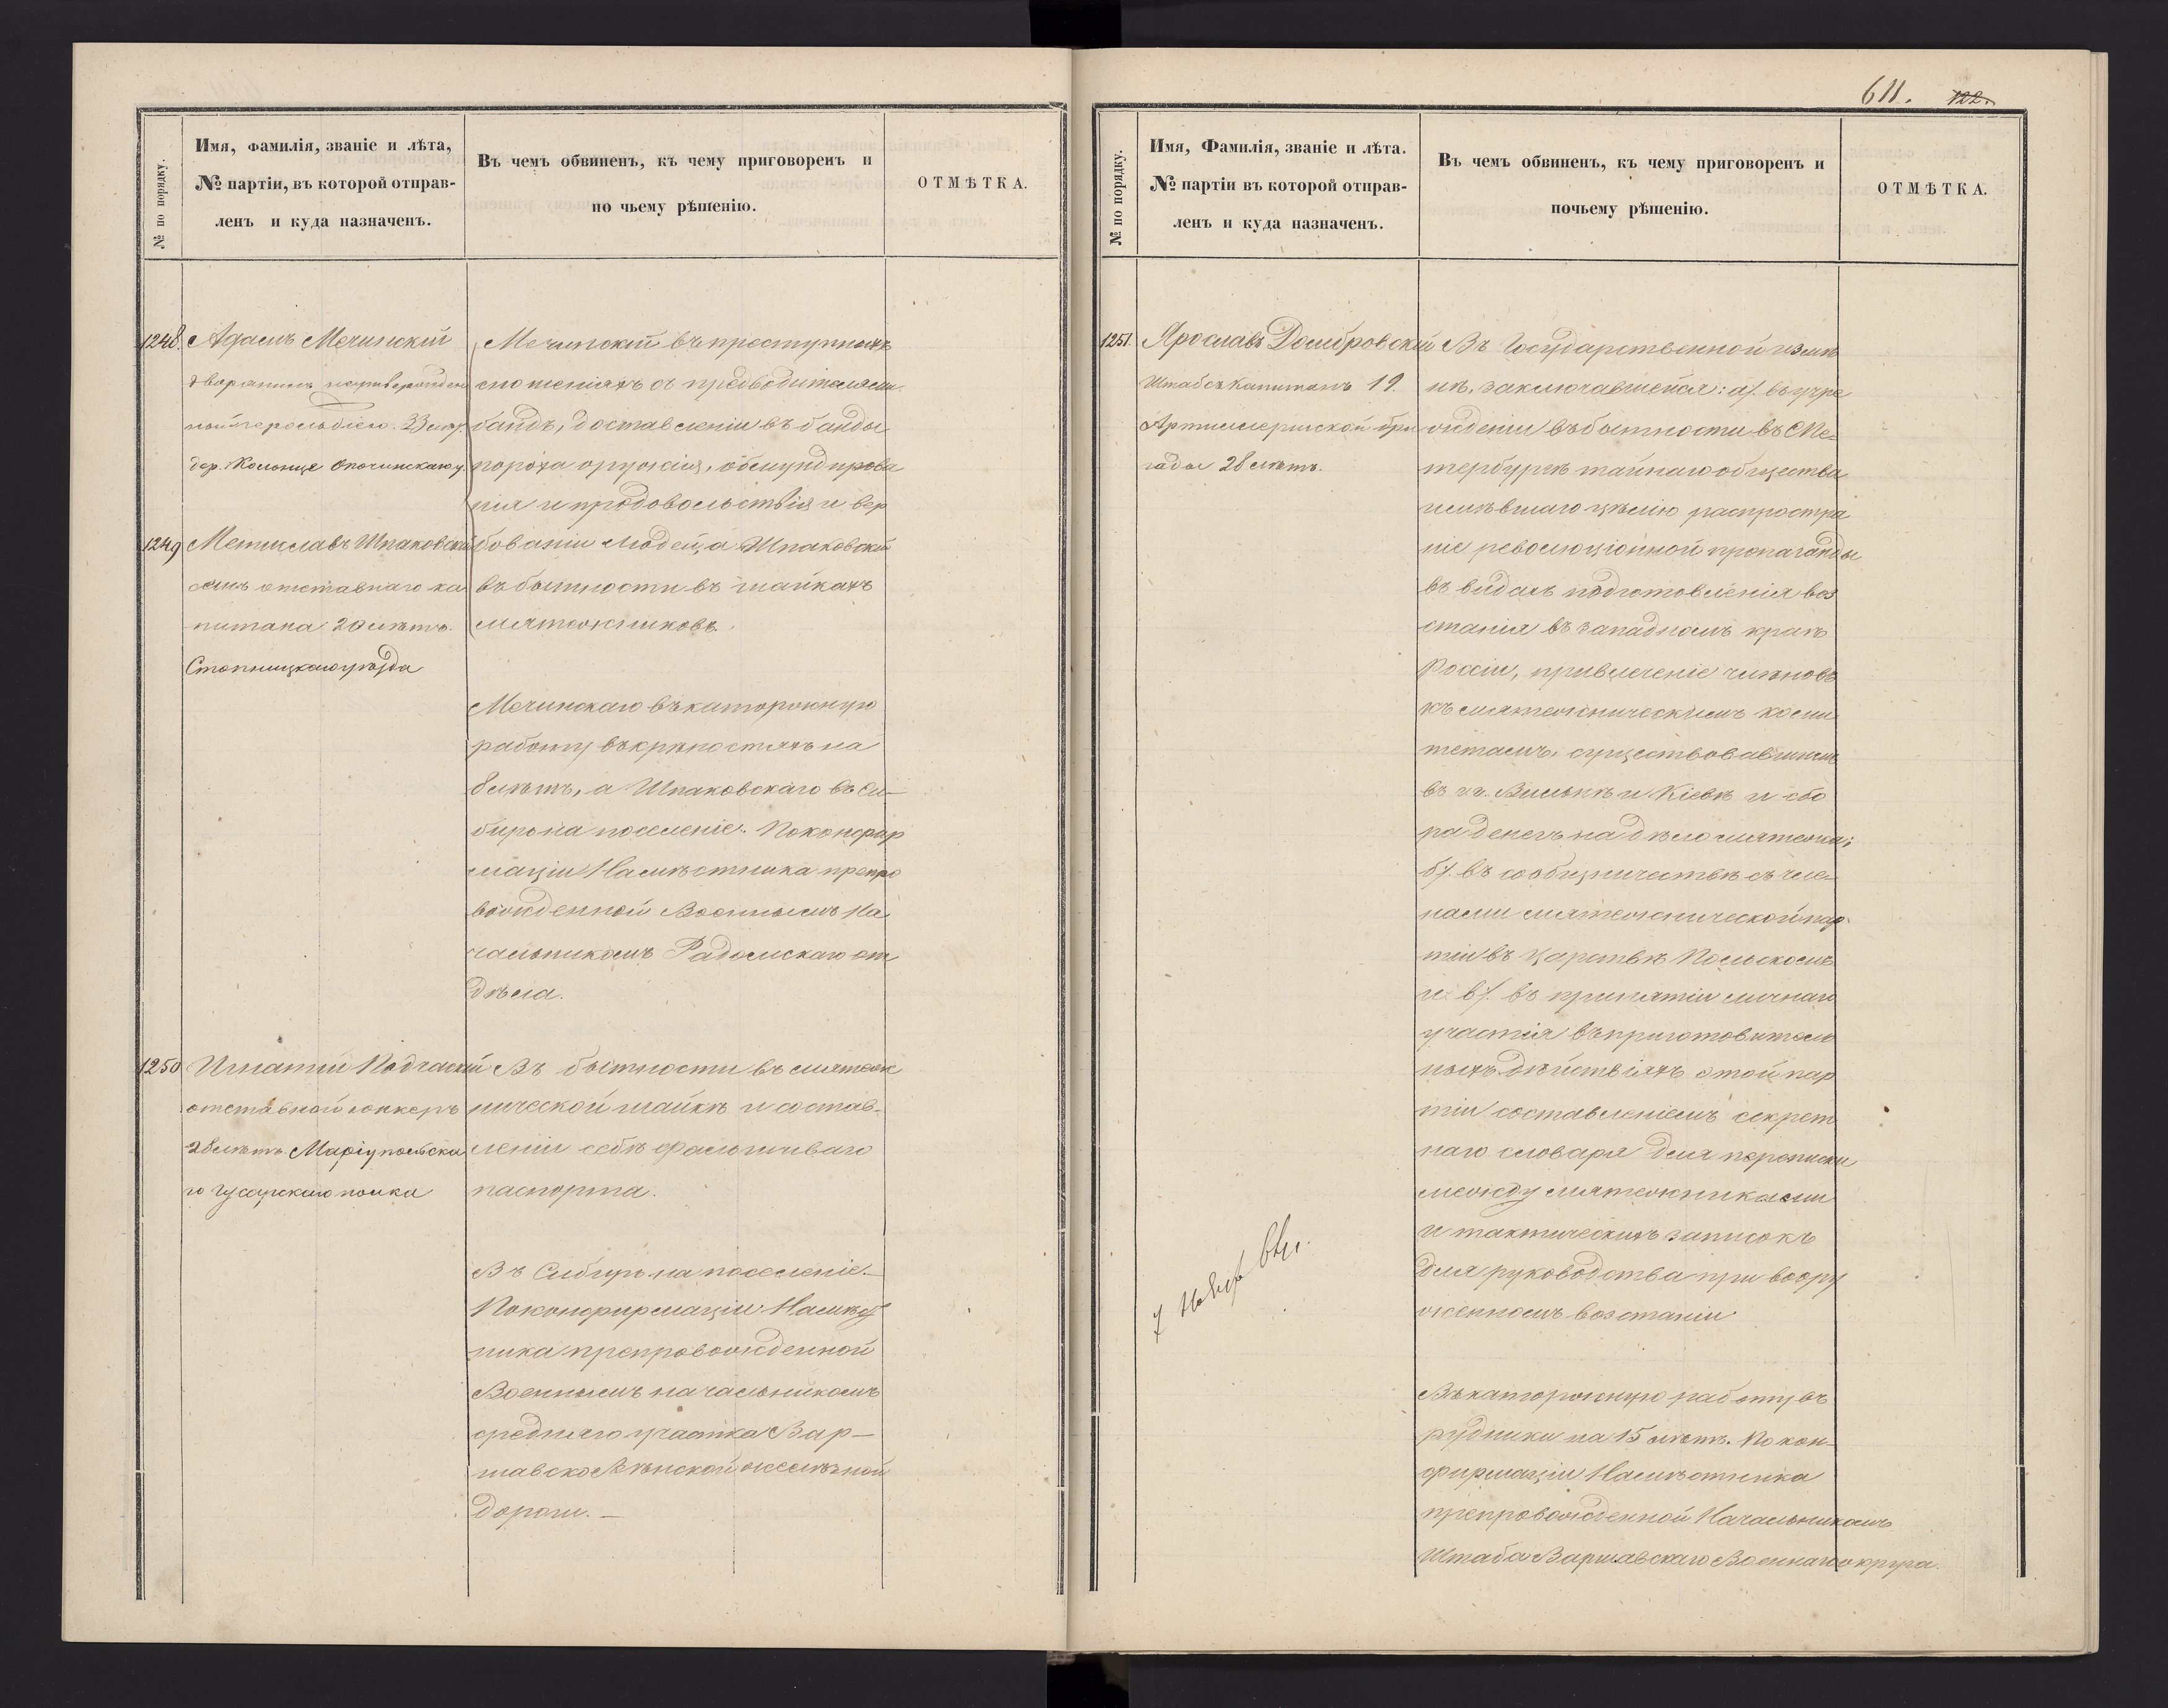 № по порядку.
Имя, фамилія, званіе и лѣта,
№ партіи, въ которой отправ-
ленъ и куда назначенъ.
Въ чемъ обвиненъ, къ чему приговоренъ и
по чьему рѣшенію.
ОТМѢТКА.
1248. Адамъ Мечинскій
дворянинъ неутвержден
ный герольдіею. 33 лѣтъ.
дер. Жолонце Опочинскаго у.
1249 Мечиславъ Шпаковскій
сынъ отставнаго ка
питана 20 лѣтъ.
Стопницкаго уѣзда
Мечинскій въ преступныхъ
сношеніяхъ съ предводителями
бандъ, доставленіи въ банды
пороха оружія, обмундирова
нія и продовольствія и вер
бованіи людей, а Шпаковскій
въ бытности въ шайкахъ
мятежниковъ.
Мечинскаго въ каторжную
работу въ крѣпостяхъ на
8 лѣтъ, а Шпаковскаго въ Си-
бирь на поселеніе. По конфир
маціи Намѣстника препро
вожденной Военнымъ На
чальникомъ Радомскаго от
дѣла.
1250 Игнатій Подчаскій
отставной юнкеръ
28 лѣтъ Маріупольска
го Гусарскаго полка
Въ бытности въ мятеж
нической шайкѣ и состав-
леніи себѣ фальшиваго
паспорта.
Въ Сибирь на поселеніе.-
По конфирмаціи Намѣст
ника препровожденной
Военнымъ начальникомъ
средняго участка Вар-
шавско Вѣнской желѣзной
дороги. -
611. 122.
№ по порядку.
Имя, Фамилія, званіе и лѣта.
№ партіи въ которой отправ-
ленъ и куда назначенъ.
Въ чемъ обвиненъ, къ чему приговоренъ и
почьему рѣшенію.
ОТМѢТКА.
1251. Ярославъ Домбровскій
Штабсъ Капитанъ 19.
Артиллерійской бри
гады 28 лѣтъ.
Въ Государственной измѣ
нѣ, заключавшейся: а/. въ учре
жденіи въ бытности въ С Пе-
тербургѣ тайнаго общества
имѣвшаго цѣлію распростра
ніе революціонной пропаганды
въ видахъ подготовленія воз
станія въ западномъ краѣ
Россіи, привлеченіе членовъ
къ мятежническимъ коми
тетамъ, существовавшимъ
въ г.г. Вильнѣ и Кіевѣ и сбо
ра денегъ на дѣло мятежа;
б/. въ сообщничествѣ съ чле-
нами мятежнической пар-
тіи въ Царствѣ Польскомъ
и в/. въ принятіи личнаго
участія въ приготовитель
ныхъ дѣйствіяхъ этой пар
тіи составленіемъ секрет
наго словаря для переписки
между мятежниками
и тактическихъ записокъ
для руководства при воору
женномъ возстаніи
Въ каторжную работу въ
рудники на 15 лѣтъ. По кон-
фирмаціи Намѣстника
препровожденной Начальникомъ
Штаба Варшавскаго Военнаго округа.